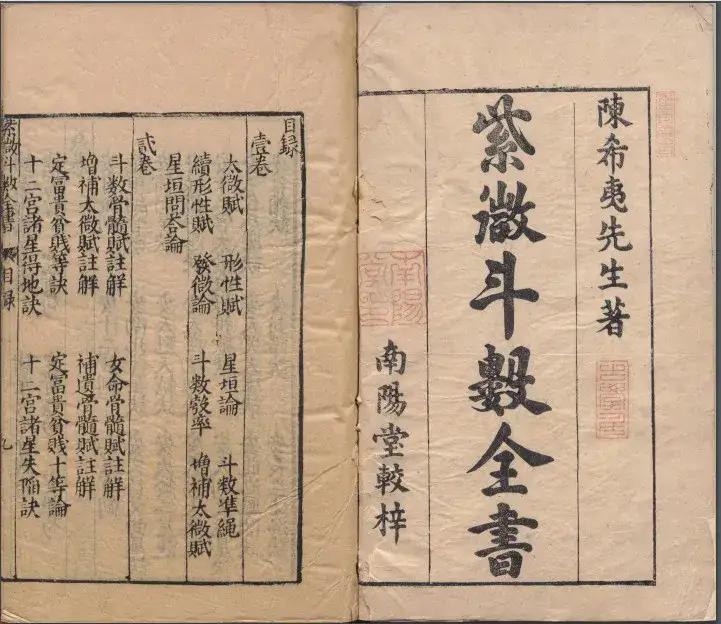 陳希夷先生著
紫微斗數全書
南陽堂較梓
南陽
目錄
壹卷
太微賦 形性賦 星垣論 斗數準繩
續形性賦 發微論 斗數彀率 增補太微賦
星垣問答論
貳卷
斗數骨髓賦註解 女命骨髓賦註解
增補太微賦註解 補遺骨髓賦註解
定富貴貧賤等訣 定富貴貧賤十等論
十二宮諸星得地訣 十二宮諸星失陷訣
紫微斗數全書 目錄